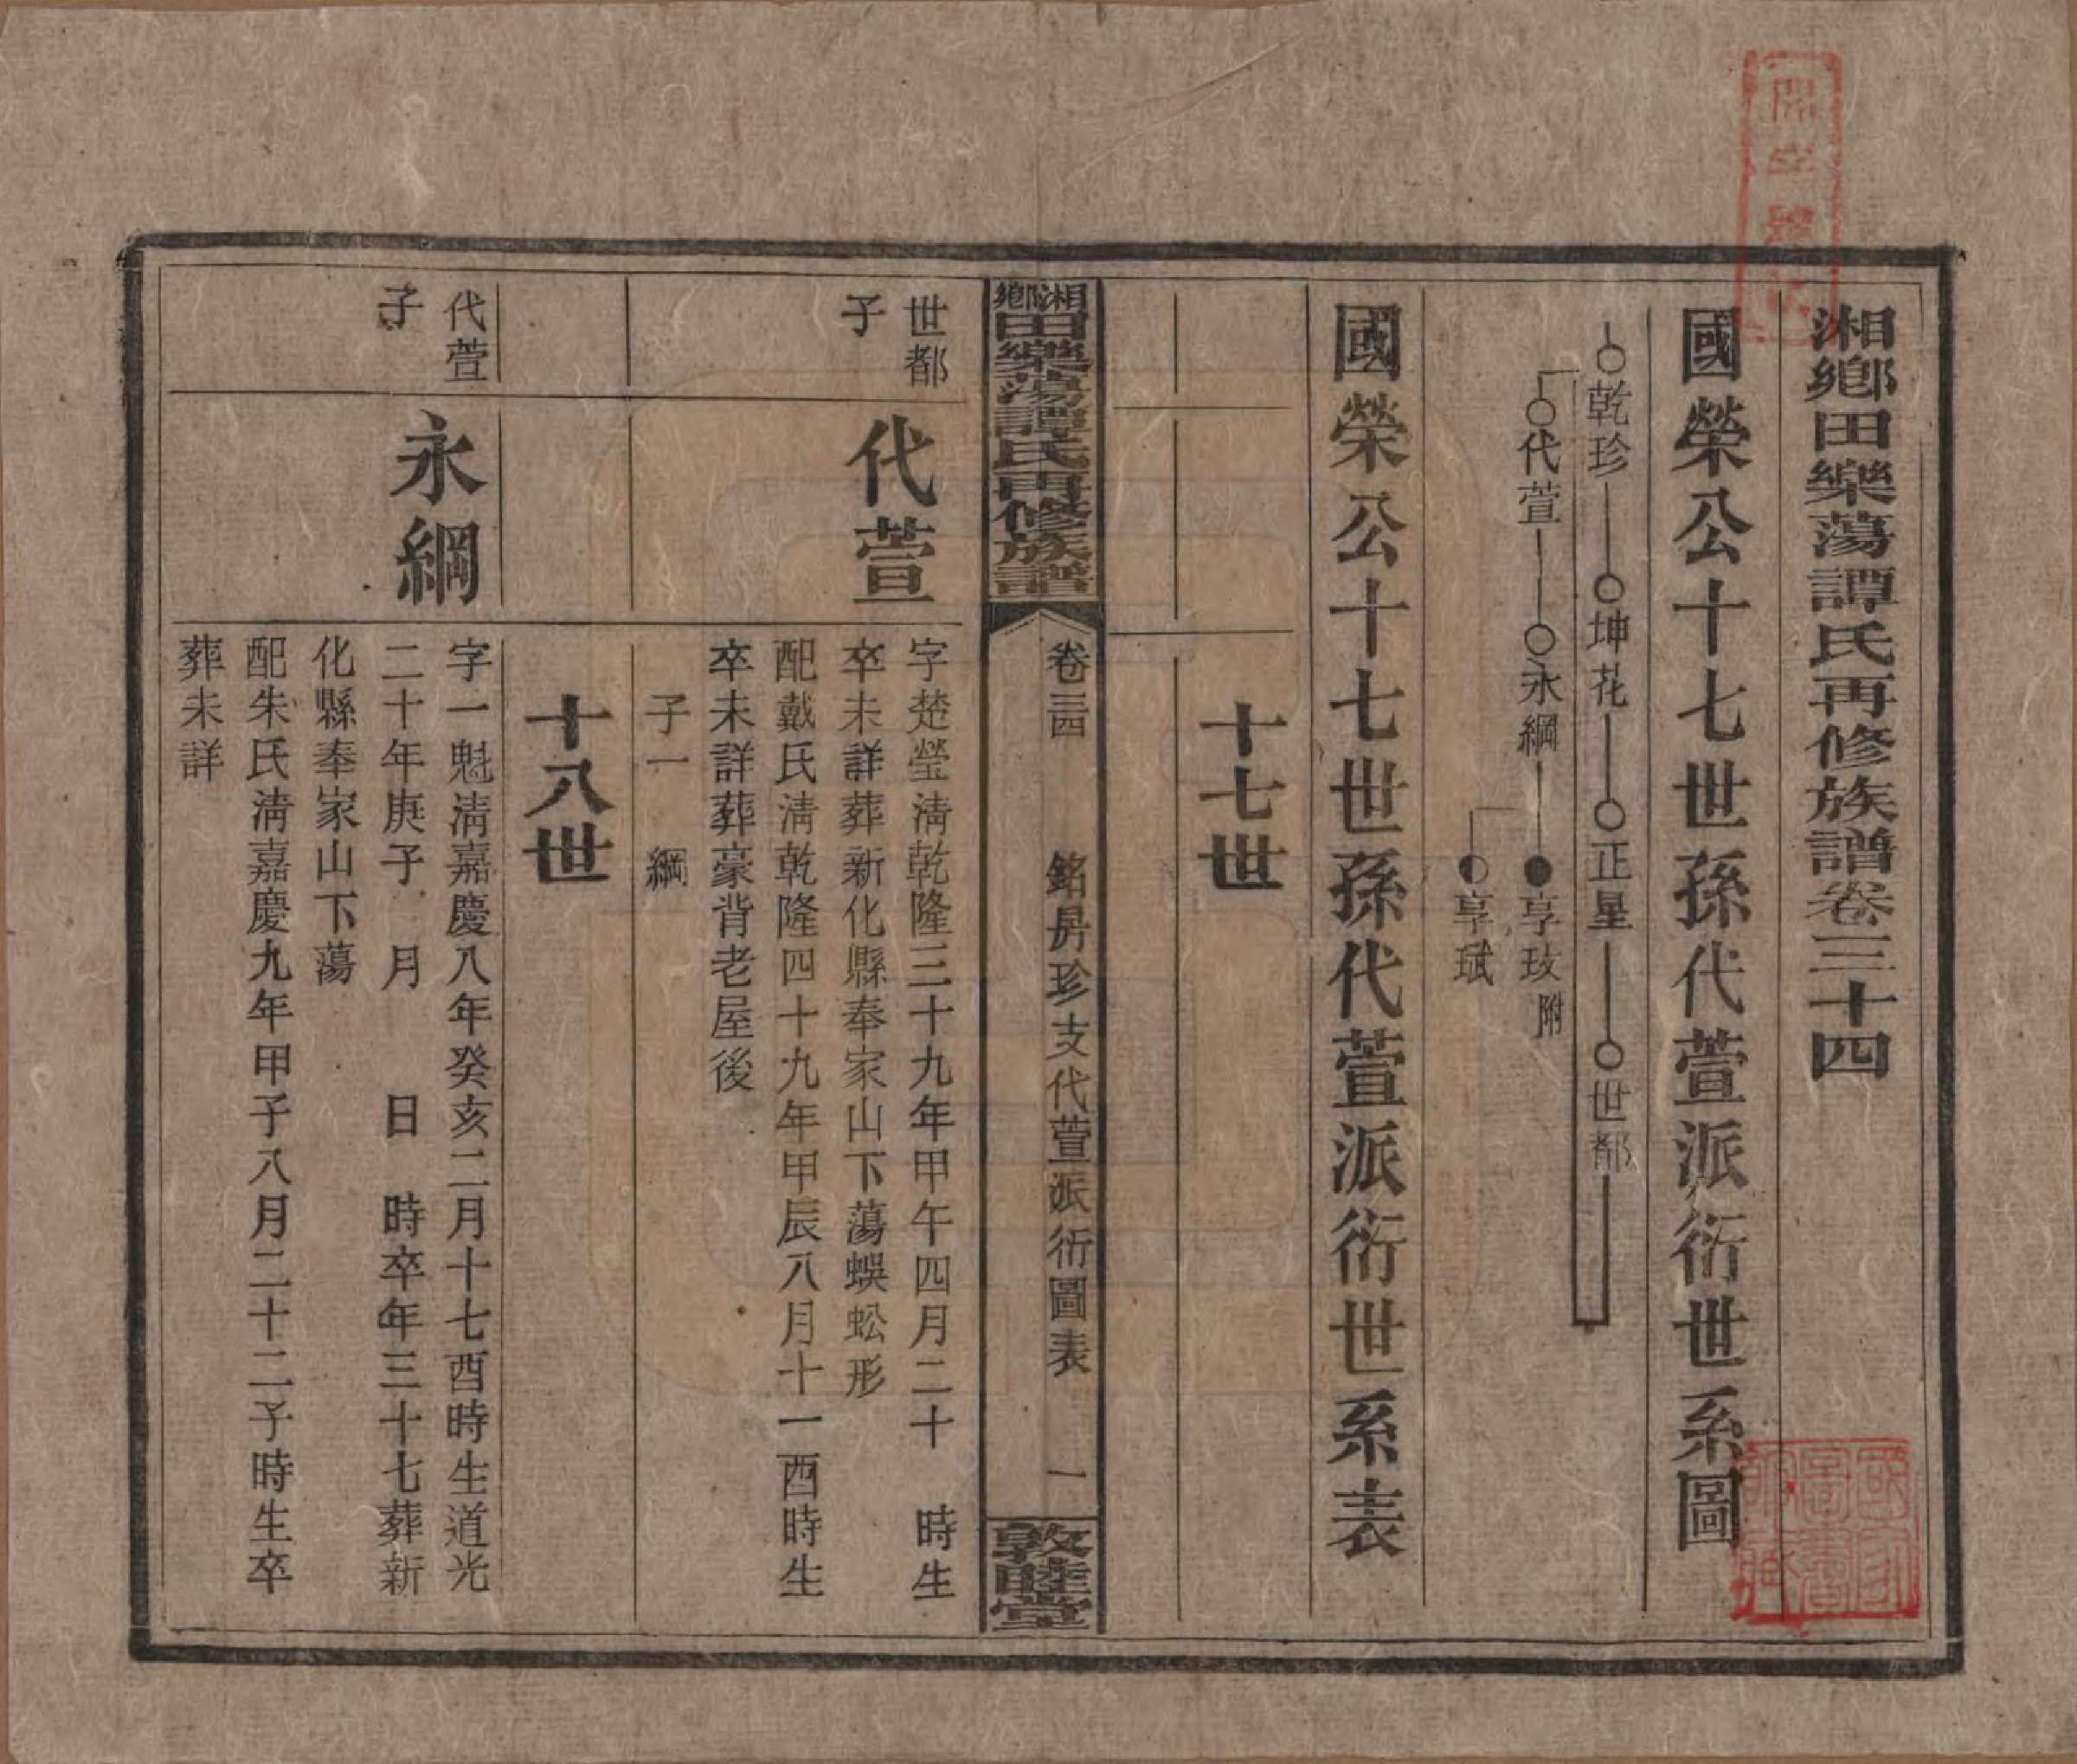 湘鄉田樂蕩譚氏再修族譜卷三十四
國榮公十七世孫代萱派衍世系圖
乾珍 坤花 正星 世都
代萱 永綱 享玫附
享珷
國榮公十七世孫代萱派衍世系表
十七世
湘鄉田樂蕩譚氏再修族譜
卷三四 銘昇珍支代萱派衍圖表 一
敦睦堂
世都
子
代萱
字楚瑩清乾隆三十九年甲午四月二十 時生
卒未詳葬新化縣奉家山下蕩蜈蚣形
配戴氏清乾隆四十九年甲辰八月十一酉時生
卒未詳葬豪背老屋後
子一 綱
十八世
代萱
子
永綱
字一魁清嘉慶八年癸亥二月十七酉時生道光
二十年庚子 月 日 時卒年三十七葬新
化縣奉家山下蕩
配朱氏清嘉慶九年甲子八月二十二子時生卒
葬未詳